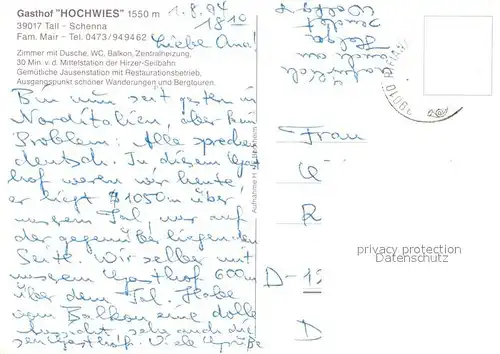 Gasthof "HOCHWIES" 1550 m
39017 Tall - Schenna
Fam. Mair - Tel. 0473/949462
1.8.94
18 10
Liebe Anna!
Zimmer mit Dusche, WC, Balkon, Zentralheizung,
30 Min. v. d. Mittelstation der Hirzer-Seilbahn
Gemütliche Jausenstation mit Restaurationsbetrieb,
Ausgangspunkt schöner Wanderungen und Bergtouren.
Bin nun seit gestern in
Norditalien, aber kein
Problem: Alle sprechen
deutsch. In diesem Gast
hof waren wir heute,
er liegt 1050m über
unserem Tal nur auf
der gegenüberliegenden
Seite. Wir selber mit
unserem Gasthof 600m
über dem Tal. Habe
vom Balkon eine dolle
Aussicht, sehe auch die-
sen Gasthof. Viele Grüße
Aufnahme H
Frau
R
D-1
D
privacy protection
Datenschutz